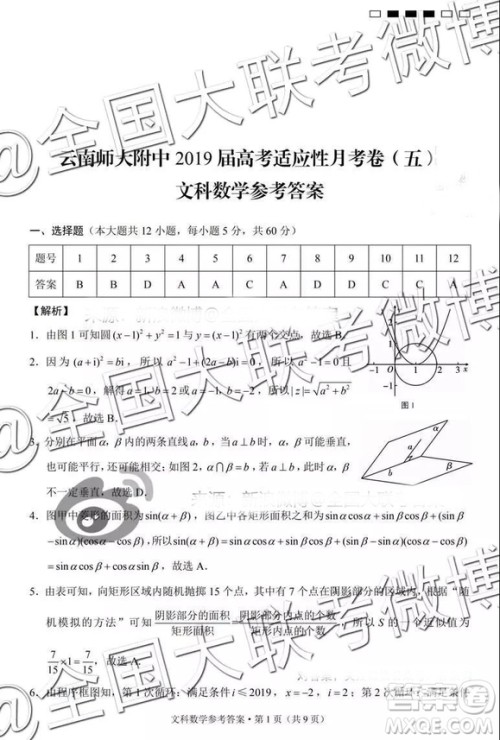 云南师大附中 2019 届高考适应性月考卷（五）
文科数学参考答案
一、选择题（本大题共 12 小题，每小题 5 分，共 60 分）
题号 1 2 3 4 5 6 7 8 9 10 11 12
答案 B B D A A C A D A C A C
【解析】
1. 由图 1 可知圆(x-1)²+y²=1与y=x²有两个交点，故选 B.
2. 因为 (a+i)²=bi，所以 a²-1+(2a-b)i=0，所以 a²-1=0 且
2a-b=0，解得a=1，b=2或a=-1，b=-2，所以|z|=√a²+b²
=√5，故选 B.
图 1
3. 分别在平面α，β内的两条直线a，b，当α⊥β，a，b可能垂直，
也可能不垂直；如图 2，α∩β=b，若a⊥b，此时α，β
不一定垂直，故选 D.
4. 图甲中菱形的面积为sin(α+β)，图乙中各矩形面积之和为sinαcosα+sinβcosβ+(sinβ
-sinα)(cosα-cosβ)，所以sin(α+β)=sinαcosα+sinβcosβ+(sinβ-sinα)(cosα-
cosβ)=sinαcosβ+cosαsinβ，故选 A.
5. 由表可知，向矩形区域内随机抛掷 15 个点，其中有 7 个点在阴影部分的区域内，根据“随
机模拟的方法”可知 阴影部分的面积/矩形面积=阴影部分内点的个数/矩形内点的个数，所以S的一个估计值为
7/15×1=7/15，故选 A.
6. 由程序框图知，第 1 次循环：满足条件i≤2019，x=-2，i=2；第 2 次循环：满足条件
文科数学参考答案·第 1 页（共 9 页）
@全国大联考微博
@全国大联考微博
答案圈